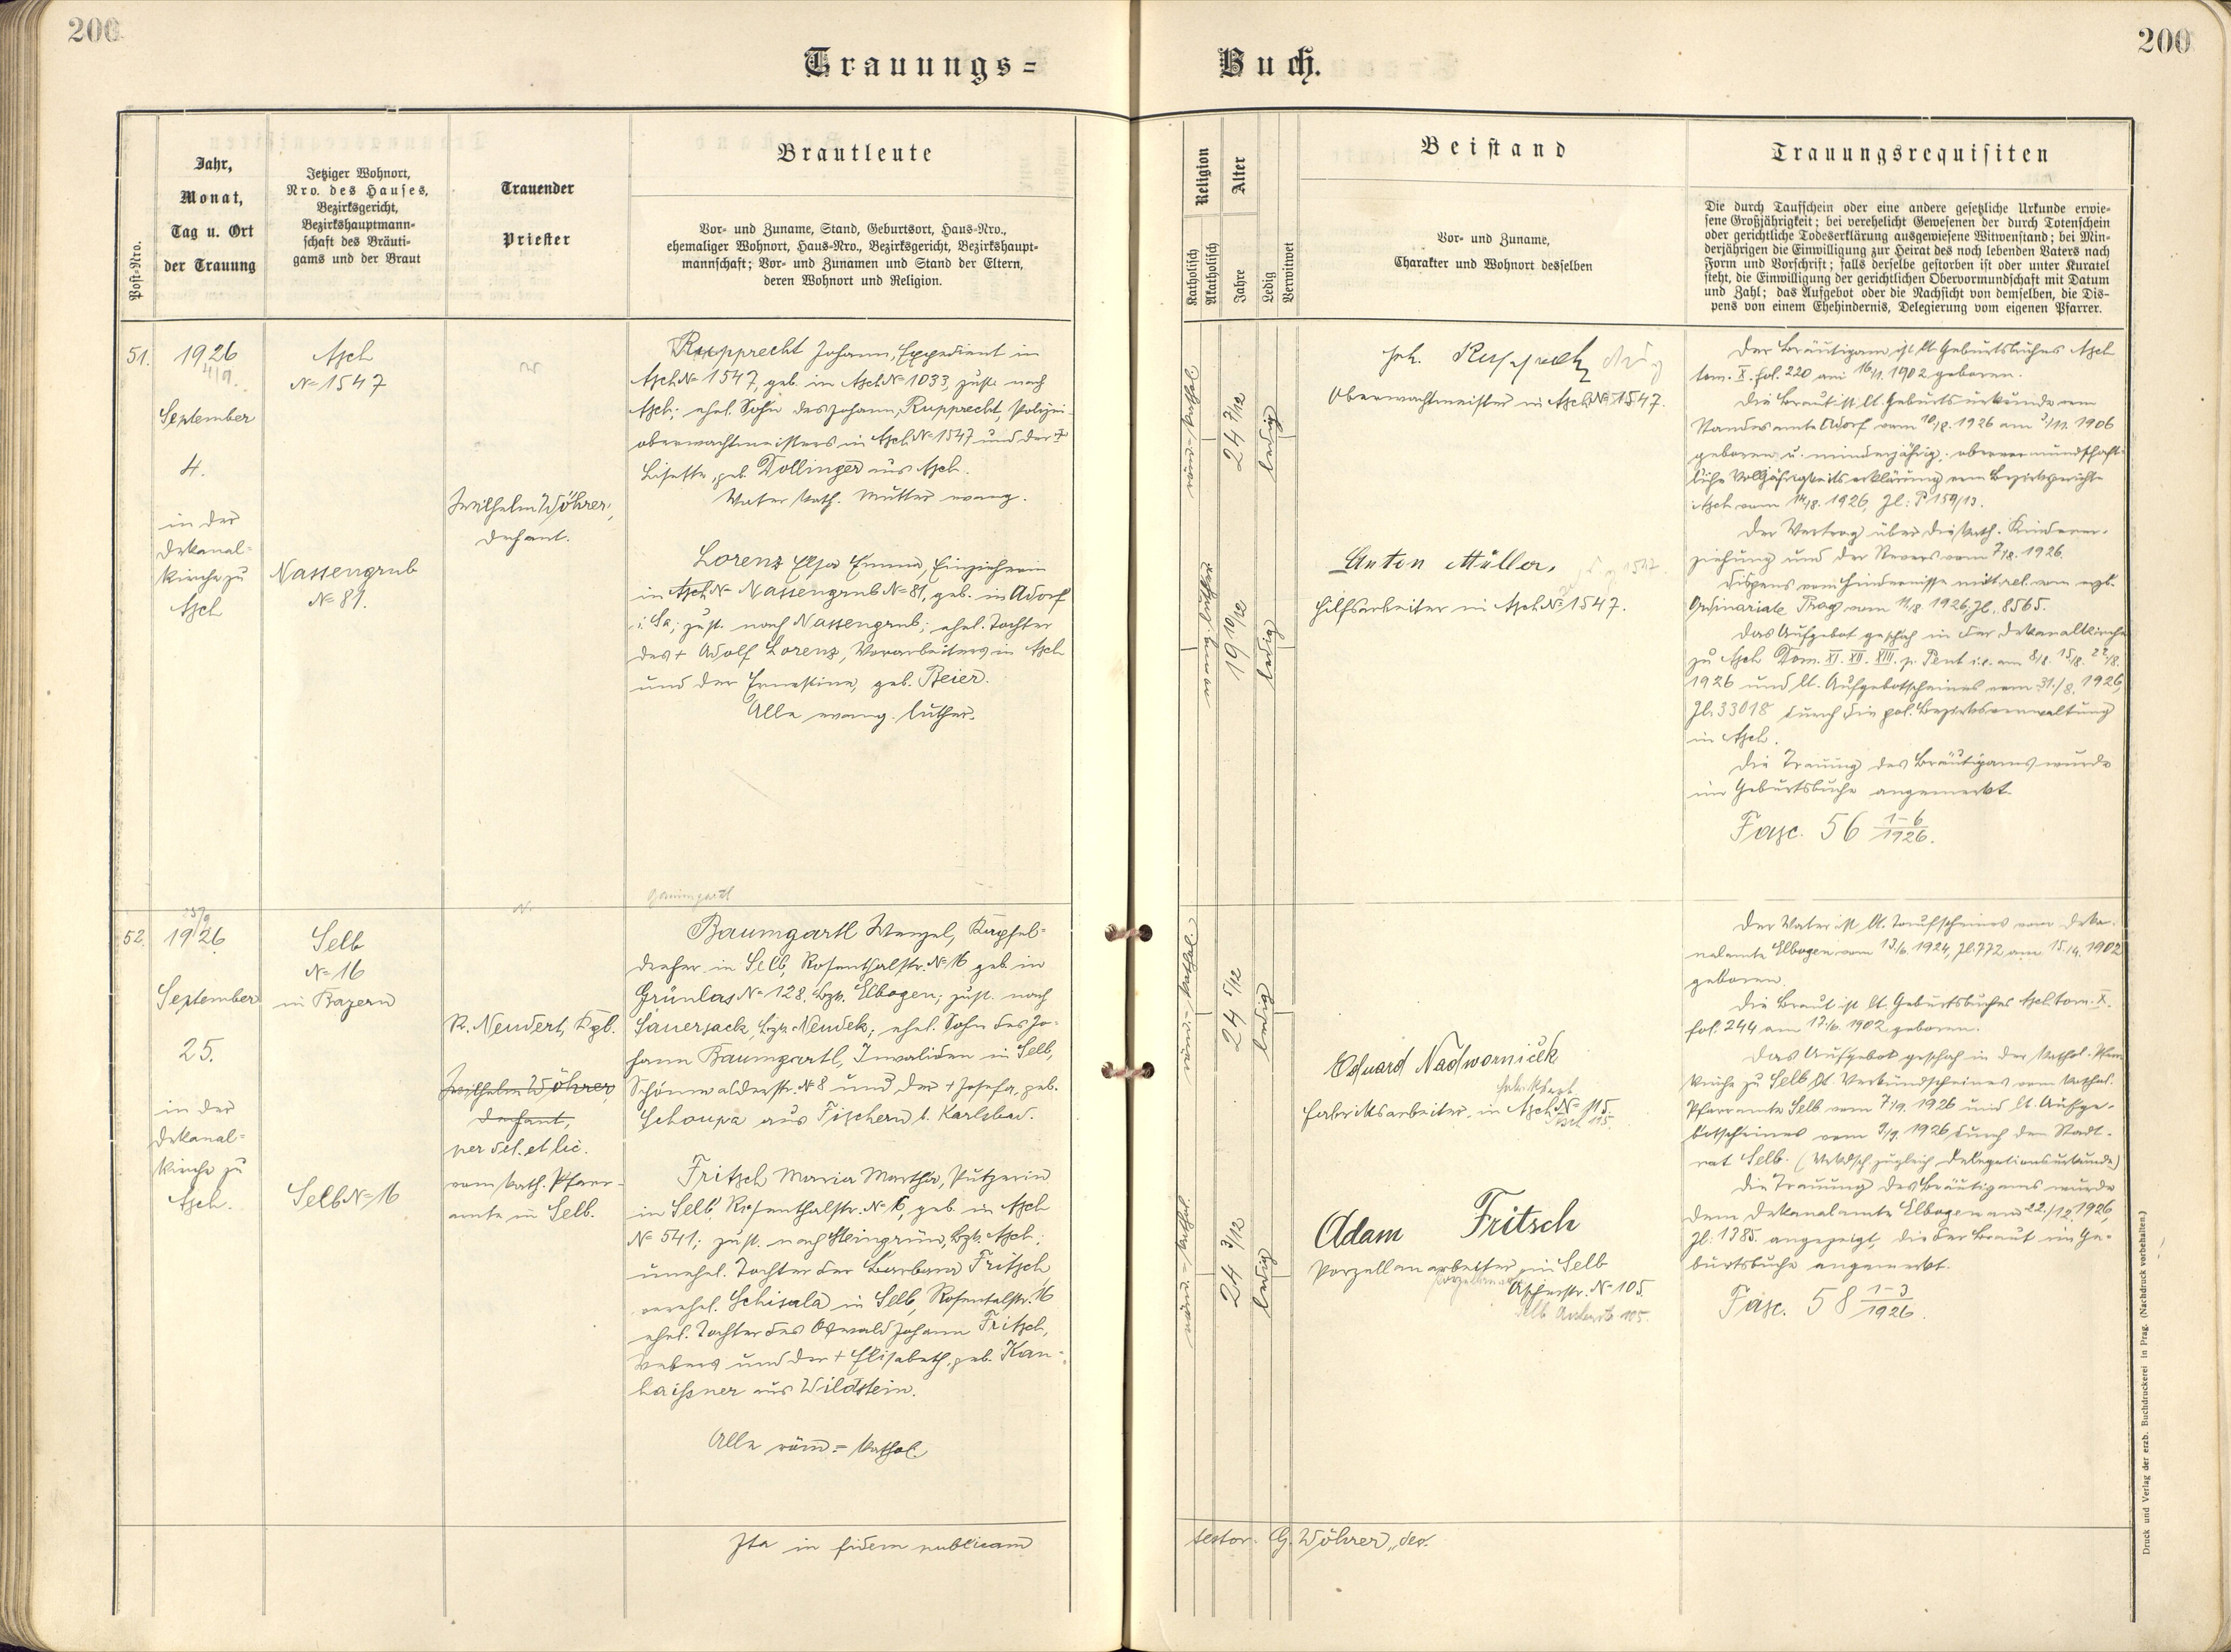 200
200
Trauungs=
Buch.
Post-Nro.
Jahr,
Monat,
Tag u. Ort
der Trauung
Jetziger Wohnort,
Nro. des Hauses,
Bezirksgericht,
Bezirkshauptmann-
schaft des Bräuti-
gams und der Braut
Trauender
Priester
Brautleute
Vor- und Zuname, Stand, Geburtsort, Haus-Nro.,
ehemaliger Wohnort, Haus-Nro., Bezirksgericht, Bezirkshaupt-
mannschaft; Vor- und Zunamen und Stand der Eltern,
deren Wohnort und Religion.
Religion
Katholisch
Akatholisch
Alter
Jahre
Ledig
Verwitwet
Beistand
Vor- und Zuname,
Charakter und Wohnort desselben
Trauungsrequisiten
Die durch Taufschein oder eine andere gesetzliche Urkunde erwie-
sene Großjährigkeit; bei verehelicht Gewesenen der durch Totenschein
oder gerichtliche Todeserklärung ausgewiesene Witwenstand; bei Min-
derjährigen die Einwilligung zur Heirat des noch lebenden Vaters nach
Form und Vorschrift; falls derselbe gestorben ist oder unter Kuratel
steht, die Einwilligung der gerichtlichen Obervormundschaft mit Datum
und Zahl; das Aufgebot oder die Nachsicht von demselben, die Dis-
pens von einem Ehehindernis, Delegierung vom eigenen Pfarrer.
51.
1926
4/9.
September
4.
in der
Dekanal=
kirche zu
Asch
Asch
No 1547
Nassengrub
No 81.
Wilhelm Wöhrer,
Dechant.
Rupprecht Johann, Expedient in
Asch No 1547, geb. in Asch No 1033, zust. nach
Asch; ehel. Sohn des Johann Rupprecht, Polizei-
oberwachtmeisters in Asch No 1547 und der +
Lisette, geb. Dollinger aus Asch.
Vater kath. Mutter evang.
Lorenz Elsa Emma, Einzieherin
in Asch No Nassengrub No 81, geb. in Adorf
i. Sa; zust. nach Nassengrub; ehel. Tochter
des + Adolf Lorenz, Vorarbeiters in Asch
und der Ernestine, geb. Beier.
Alle evang. luther.
24 7/12
ledig
19 10/12
ledig
Joh. Rupprecht
Oberwachtmeister in Asch No 1547.
Anton Müller,
Hilfsarbeiter in Asch No 1547.
Der Bräutigam ist lt. Geburtsbuches Asch
tom. X. fol. 220 am 16/1. 1902 geboren.
Die Braut ist lt. Geburtsurkunde vom
Standesamte Adorf vom 10/8. 1926 am 3/11. 1906
geboren u. minderjährig; obervormundschaft-
liche Volljährigkeitserklärung vom Bezirksgerichte
Asch vom 14/8. 1926, Zl: P 159/13.
Der Vertrag über die kath. Kinderer-
ziehung und der Revers vom 7/8. 1926.
Dispens vom Hindernisse mixt. rel. vom erzb.
Ordinariate Prag vom 11/8. 1926, Zl. 8565.
Das Aufgebot geschah in der Dekanalkirche
zu Asch Dom. XI. XII. XIII. p. Pent i.e. am 8/8. 15/8. 22/8.
1926 und lt. Aufgebotscheines vom 31./8. 1926,
Zl. 33018 durch die pol. Bezirksverwaltung
in Asch.
Die Trauung des Bräutigams wurde
im Geburtsbuche angemerkt.
Fasc. 56 1-6/1926.
52.
25/9
1926
September
25.
in der
Dekanal=
kirche zu
Asch.
Selb
No 16
in Bayern
Selb No 16
R. Neudert, Kpl.
Wilhelm Wöhrer
Dechant,
per del. et lic.
vom kath. Pfarr-
amte in Selb.
Baumgartl
Baumgartl Wenzel, Kapsel=
dreher in Selb, Rosenthalstr. No 16 geb. in
Grünlas No 128. Bzk. Elbogen; zust. nach
Sauersack, Bzk Neudek; ehel. Sohn des Jo-
hann Baumgartl, Invaliden in Selb,
Schönwalderstr. No 8 und der + Josefa, geb.
Schoupa aus Fischern b. Karlsbad.
Fritsch Maria Martha, Putzerin
in Selb, Rosenthalstr. No 16, geb. in Asch
No 541; zust. nach Steingrün, Bzk. Asch;
unehel. Tochter der Barbara Fritsch,
verehel. Schisala in Selb, Rosentalstr. 16
ehel. Tochter des Oswald Johann Fritsch,
Webers und der + Elisabeth, geb. Kan-
haißner aus Wildstein.
Alle röm = kathol.
24 5/12
ledig
24 3/12
ledig
Eduard Nadwornicek
Fabriksarbeiter, in Asch No 115.
Adam Fritsch
Porzellanarbeiter in Selb
Ascherstr. No 105.
Der Vater ist lt. Taufscheines vom Deka-
nalamte Elbogen vom 13/6. 1924, Zl. 772 am 15./4. 1902
geboren.
Die Braut ist lt. Geburtsbuches Asch tom. X.
fol. 244 am 17/6. 1902 geboren.
Das Aufgebot geschah in der kathol. Pfarr-
kirche zu Selb lt. Verkündscheines vom kathol.
Pfarramte Selb vom 7/9. 1926 und lt. Aufge-
botscheines vom 9/9. 1926 durch den Stadt-
rat Selb. (Vrkdsch. zugleich Delegationsurkunde)
Die Trauung des Bräutigams wurde
dem Dekanalamte Elbogen am 22./12. 1926,
Zl. 1385. angezeigt, die der Braut im Ge-
burtsbuche angemerkt.
Fasc. 58 1-3/1926.
Ita in fidem publicam
testor. G. Wöhrer, dec.
Druck und Verlag der erzb. Buchdruckerei in Prag. (Nachdruck vorbehalten.)